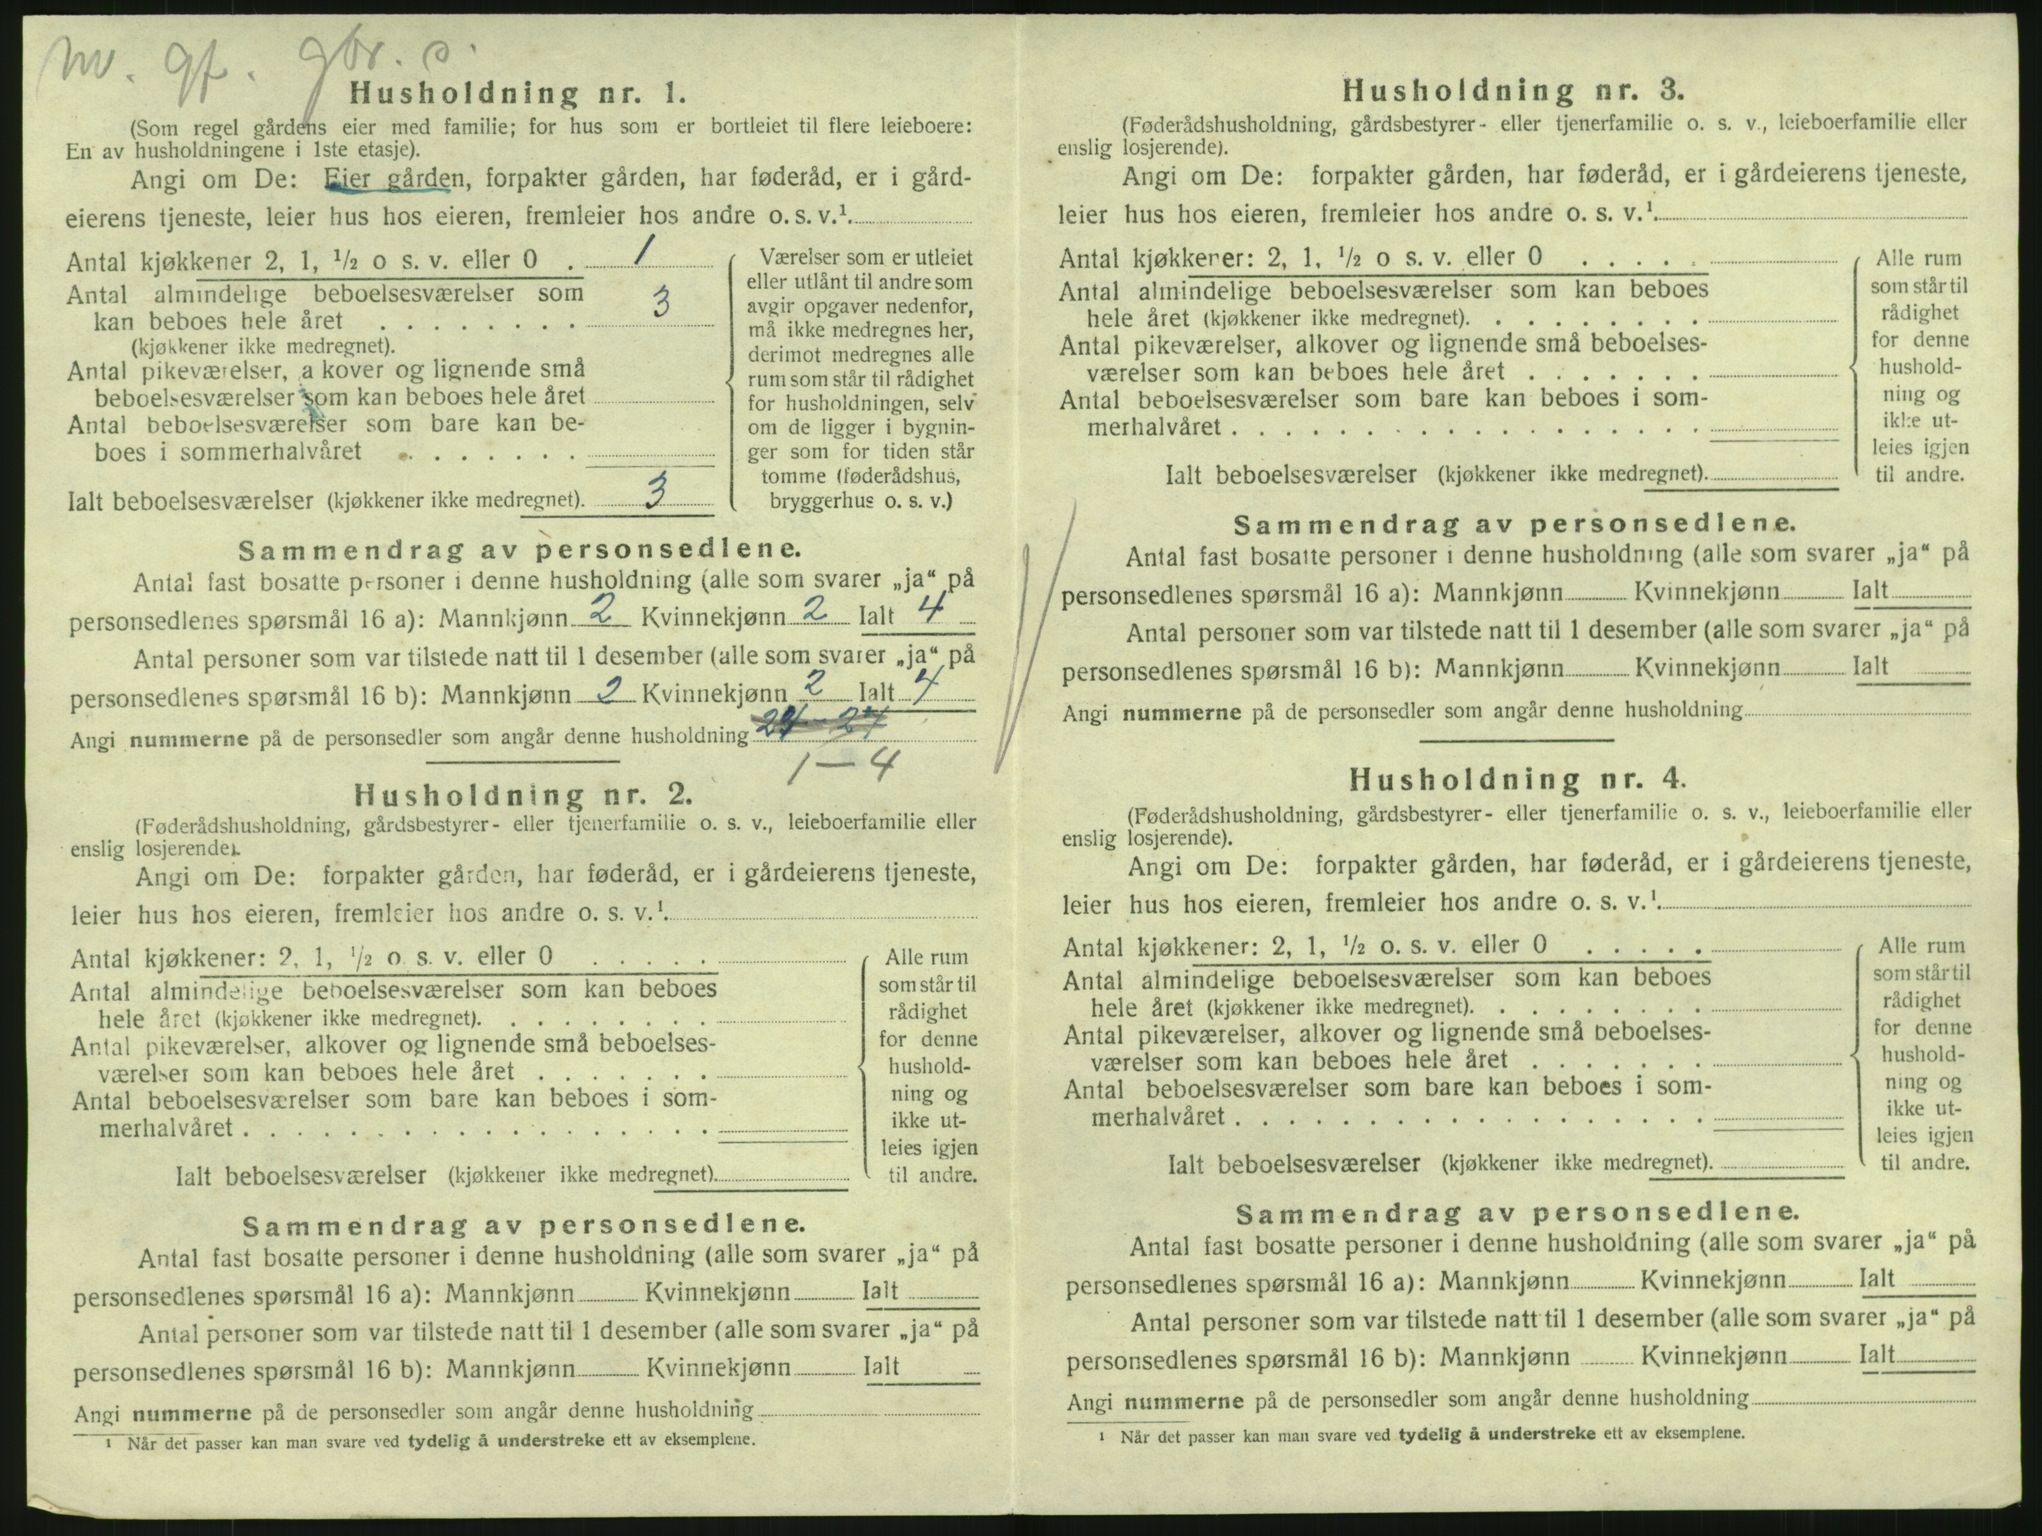 gf. gbr. c.
Husholdning nr. 1.
(Som regel gårdens eier med familie; for hus som er bortleiet til flere leieboere:
En av husholdningene i 1ste etasje).
Angi om De: Eier gården, forpakter gården, har føderåd, er i gård-
eierens tjeneste, leier hus hos eieren, fremleier hos andre o. s. v.¹
Antal kjøkkener 2, 1, ½ o s. v. eller 0 . 1
Antal almindelige beboelsesværelser som
kan beboes hele året . . . . . . . . 3
(kjøkkener ikke medregnet).
Antal pikeværelser, a kover og lignende små
beboelsesværelser som kan beboes hele året
Antal beboelsesværelser som bare kan be-
boes i sommerhalvåret . . . . . . .
Ialt beboelsesværelser (kjøkkener ikke medregnet). 3
Værelser som er utleiet
eller utlånt til andre som
avgir opgaver nedenfor,
må ikke medregnes her,
derimot medregnes alle
rum som står til rådighet
for husholdningen, selv
om de ligger i bygnin-
ger som for tiden står
tomme (føderådshus,
bryggerhus o. s. v.)
Sammendrag av personsedlene.
Antal fast bosatte personer i denne husholdning (alle som svarer „ja“ på
personsedlenes spørsmål 16 a): Mannkjønn 2 Kvinnekjønn 2 Ialt 4
Antal personer som var tilstede natt til 1 desember (alle som svarer „ja“ på
personsedlenes spørsmål 16 b): Mannkjønn 2 Kvinnekjønn 2 Ialt 4
Angi nummerne på de personsedler som angår denne husholdning 24-27
1-4
Husholdning nr. 2.
(Føderådshusholdning, gårdsbestyrer- eller tjenerfamilie o. s. v., leieboerfamilie eller
enslig losjerende).
Angi om De: forpakter gården, har føderåd, er i gårdeierens tjeneste,
leier hus hos eieren, fremleier hos andre o. s. v.¹
Antal kjøkkener: 2, 1, ½ o s. v. eller 0 . . . . .
Antal almindelige beboelsesværelser som kan beboes
hele året (kjøkkener ikke medregnet). . . . . . . . .
Antal pikeværelser, alkover og lignende små beboelses-
værelser som kan beboes hele året . . . . . . .
Antal beboelsesværelser som bare kan beboes i som-
merhalvåret . . . . . . . . . . . . . . . . . .
Ialt beboelsesværelser (kjøkkener ikke medregnet).
Alle rum
som står til
rådighet
for denne
hushold-
ning og
ikke ut-
leies igjen
til andre.
Sammendrag av personsedlene.
Antal fast bosatte personer i denne husholdning (alle som svarer „ja“ på
personsedlenes spørsmål 16 a): Mannkjønn Kvinnekjønn Ialt
Antal personer som var tilstede natt til 1 desember (alle som svarer „ja“ på
personsedlenes spørsmål 16 b): Mannkjønn Kvinnekjønn Ialt
Angi nummerne på de personsedler som angår denne husholdning
¹ Når det passer kan man svare ved tydelig å understreke ett av eksemplene.
Husholdning nr. 3.
(Føderådshusholdning, gårdsbestyrer- eller tjenerfamilie o. s. v., leieboerfamilie eller
enslig losjerende).
Angi om De: forpakter gården, har føderåd, er i gårdeierens tjeneste,
leier hus hos eieren, fremleier hos andre o. s. v.¹
Antal kjøkkener: 2, 1, ½ o s. v. eller 0 . . . . .
Antal almindelige beboelsesværelser som kan beboes
hele året (kjøkkener ikke medregnet). . . . . . . . .
Antal pikeværelser, alkover og lignende små beboelses-
værelser som kan beboes hele året . . . . . . .
Antal beboelsesværelser som bare kan beboes i som-
merhalvåret . . . . . . . . . . . . . . . . . .
Ialt beboelsesværelser (kjøkkener ikke medregnet).
Alle rum
som står til
rådighet
for denne
hushold-
ning og
ikke ut-
leies igjen
til andre.
Sammendrag av personsedlene.
Antal fast bosatte personer i denne husholdning (alle som svarer „ja“ på
personsedlenes spørsmål 16 a): Mannkjønn Kvinnekjønn Ialt
Antal personer som var tilstede natt til 1 desember (alle som svarer „ja“ på
personsedlenes spørsmål 16 b): Mannkjønn Kvinnekjønn Ialt
Angi nummerne på de personsedler som angår denne husholdning
Husholdning nr. 4.
(Føderådshusholdning, gårdsbestyrer- eller tjenerfamilie o. s. v., leieboerfamilie eller
enslig losjerende).
Angi om De: forpakter gården, har føderåd, er i gårdeierens tjeneste,
leier hus hos eieren, fremleier hos andre o. s. v.¹
Antal kjøkkener: 2, 1, ½ o. s. v. eller 0 . . . . .
Antal almindelige beboelsesværelser som kan beboes
hele året (kjøkkener ikke medregnet). . . . . . . . .
Antal pikeværelser, alkover og lignende små beboelses-
værelser som kan beboes hele året . . . . . . .
Antal beboelsesværelser som bare kan beboes i som-
merhalvåret . . . . . . . . . . . . . . . . . .
Ialt beboelsesværelser (kjøkkener ikke medregnet).
Alle rum
som står til
rådighet
for denne
hushold-
ning og
ikke ut-
leies igjen
til andre.
Sammendrag av personsedlene.
Antal fast bosatte personer i denne husholdning (alle som svarer „ja“ på
personsedlenes spørsmål 16 a): Mannkjønn Kvinnekjønn Ialt
Antal personer som var tilstede natt til 1 desember (alle som svarer „ja“ på
personsedlenes spørsmål 16 b): Mannkjønn Kvinnekjønn Ialt
Angi nummerne på de personsedler som angår denne husholdning
¹ Når det passer kan man svare ved tydelig å understreke ett av eksemplene.